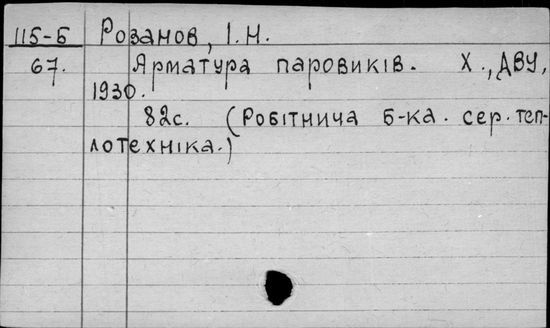 115-Б Розанов, І.Н.
67. Ярматура паровиків. Х., ДВУ,
1930.
82с. (Робітнича б-ка. сер. теп-
лотехніка.)